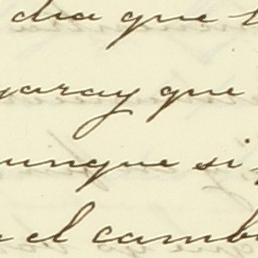 dia que
garay que
unque si
el camb